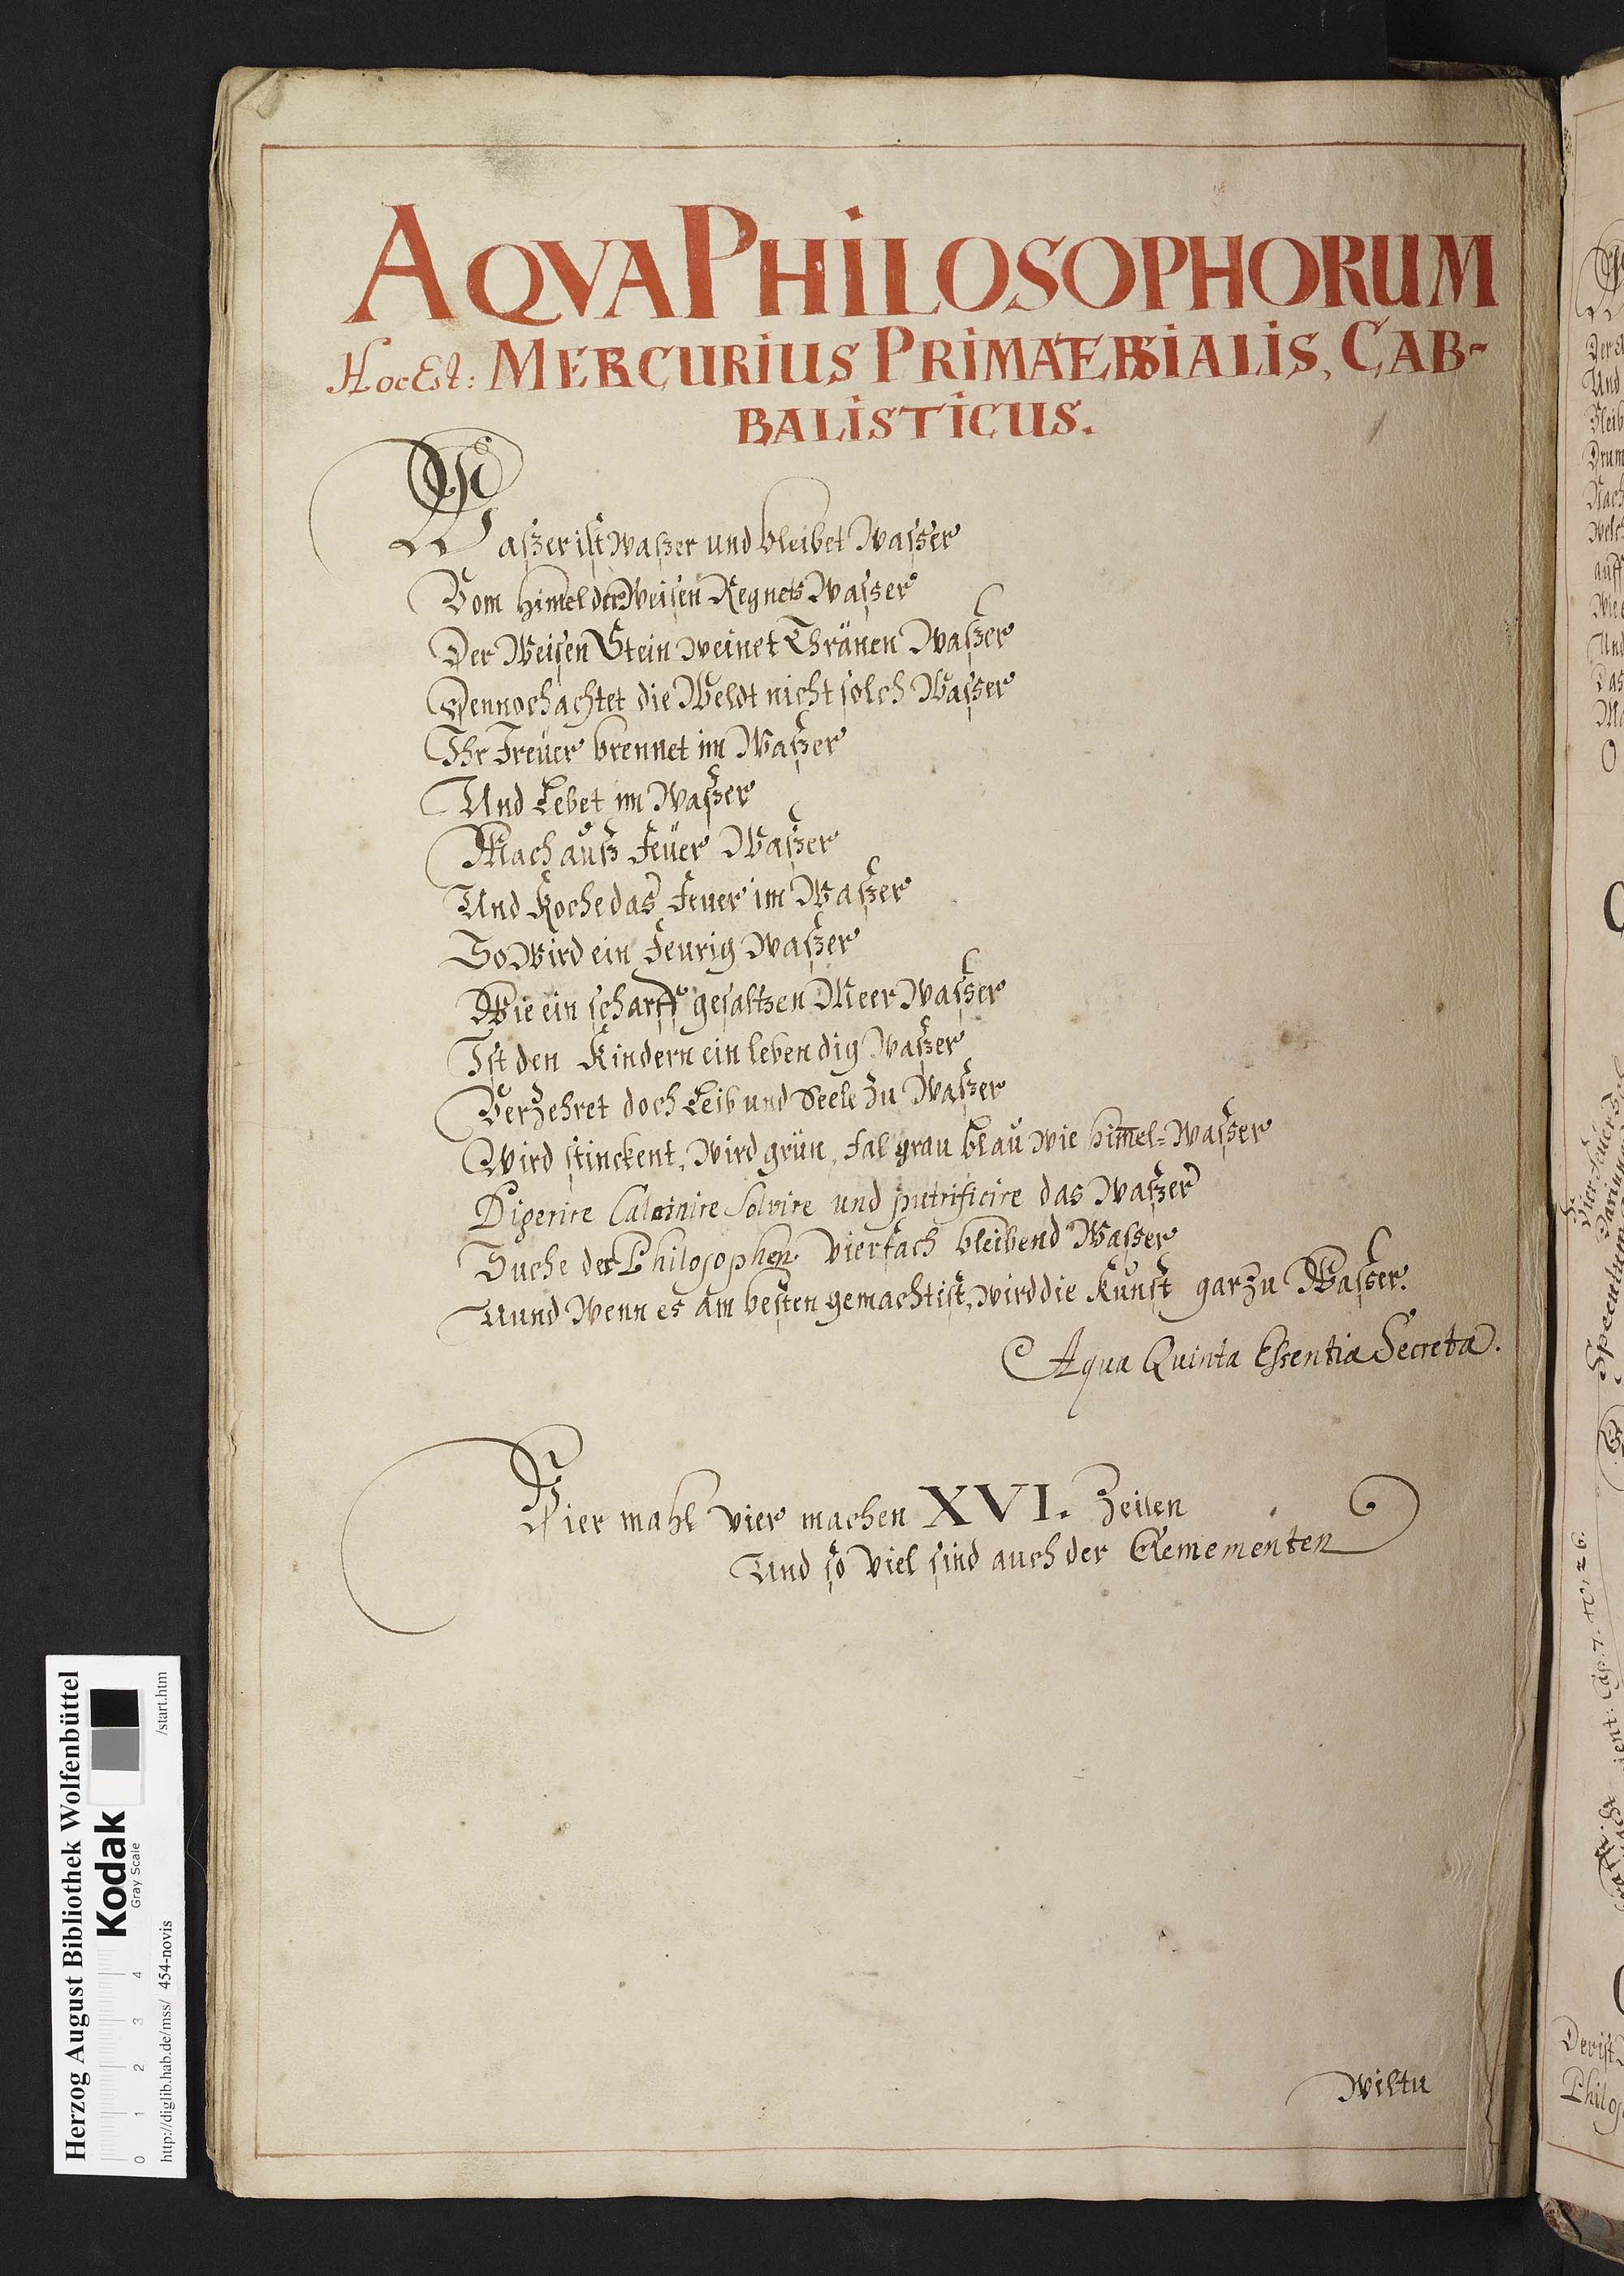 AQVA PHILOSOPHORUM
Hoc Est: MERCURIUS PRIMATERIALIS, CAB-
BALISTICUS.
Waßer ist waßer und bleibet Waßer
Vom Himel der Weisen Regnets Wasser
Der Weisen Stein weinet Thränen Waßer
Dennoch achtet die Weldt nicht solch Wasser
Ihr Freüer brennet im Waßer
Und Lebet im Waßer
Mach auß Feüer Waßer
Und Koche das Feuer im Waßer
So Wird ein Feurig Waßer
Wie ein scharff gesaltzen Meer Waßer
Ist den Kindern ein lebendig Waßer
Verzehret doch Leib und Seele zu Waßer
Wird stinckent, Wird grün, fal grau blau wie him̄el=Waßer
Digerire Calcinire Solvire und putrificire das Waßer
Suche der Philosophen vierfach bleibend Waßer
Uund Wenn es am besten gemacht ist, wird die Kunst gar zu Waßer.
Aqua Quinta Essentia Secreta.
Vier mahl vier machen XVI. Zeilen
Und so viel sind auch der Elemementen
Wiltu
Und
Nach
auff
Und
Das
O
Speculum
Cap. 7.
Der ist
Herzog August Bibliothek Wolfenbüttel
Kodak
Gray Scale
0 1 2 3 4
http://diglib.hab.de/mss/ 454-novis /start.htm